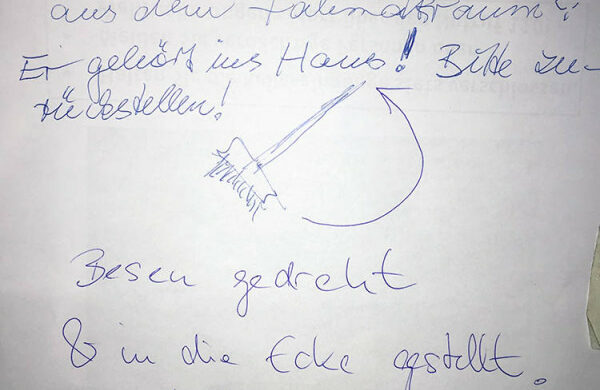 aus dem Fahrradraum?
Er gehört ins Haus! Bitte zu-
rückstellen!
Besen gedreht
& in die Ecke gestellt.